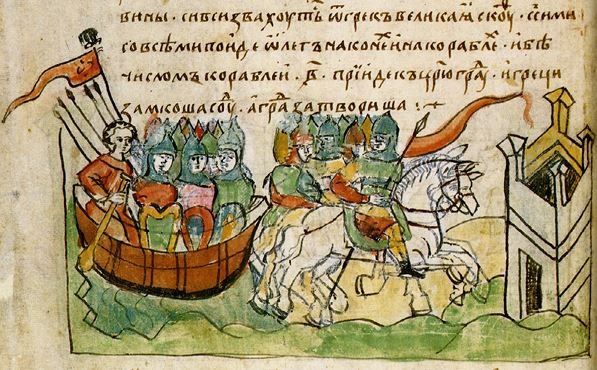 вины · си вси звахоутъ ѿ грекъ великаꙗ скоуⷴ · с сими
со всѣми поиде ѡлегъ на конеⷯ и на кораблеⷯ · и бѣ
числомъ кораблеи · ҂в҃ · прїиде къ цр҃юграⷣу · и греци
замкоша соуⷣ · а граⷣ затвориша :·